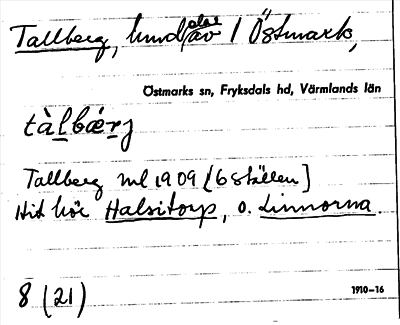 Tallberg, hmd, del av I Östmark,
Östmarks sn, Fryksdals hd, Värmlands län
tàlbærj
Tallberg ml 1909 [6 ställen]
Hit hör Halsitorp, o. Linnorna.
8 (21)
1910-16